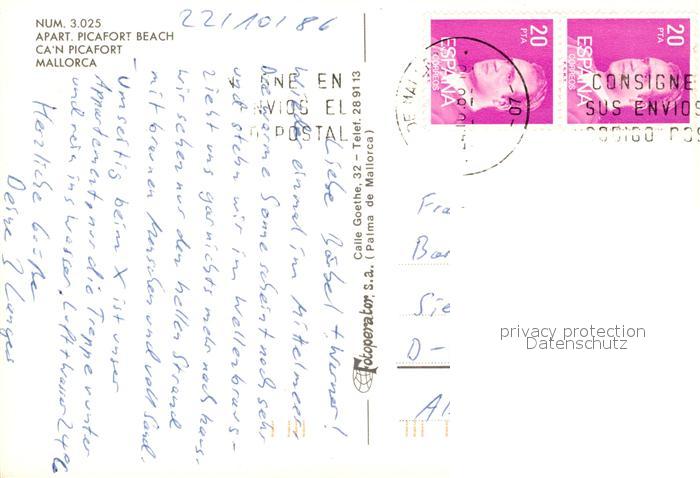 22/10/86
NUM. 3.025
APART. PICAFORT BEACH
CA'N PICAFORT
MALLORCA
Liebe Bärbel + Werner!
Wieder einmal im Mittelmeer
Die warme Sonne scheint noch sehr
und stehn wir im Wellenbraus -
zieht uns garnichts mehr nach Haus.
Wir sehen nur den hellen Strand
mit braunen Menschen und voll Sand.
- Umseitig beim X ist unser
Appartement, nur die Treppe runter
und rein ins Wasser. Luft + Wasser 24%
Herzliche Grüße
Deine 3
Fotoperator, s.a.
Calle Goethe, 32 - Telef. 28 91 13
(Palma de Mallorca)
20 PTA
ESPAÑA
CORREOS
20 PTA
ESPAÑA
CORREOS
CONSIGNE EN
SUS ENVIOS EL
CODIGO POSTAL
CONSIGNE
SUS ENVIOS
CODIGO POS
Fra
Sie
D-
privacy protection
Datenschutz